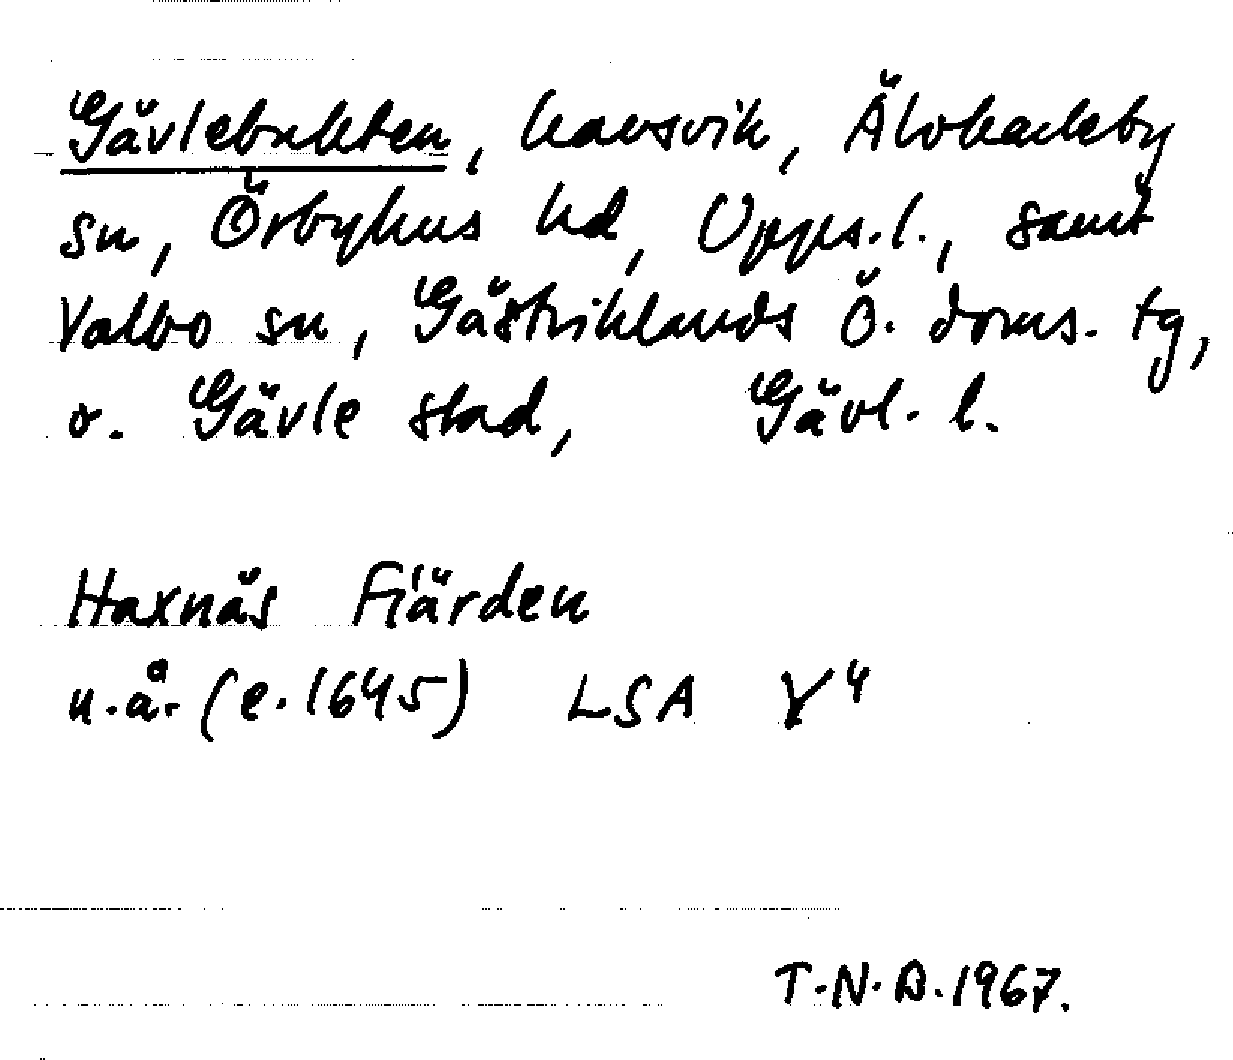 Gävlebukten, havsvik, Älvkarleby
sn, Örbyhus hd, Upps.l., samt
Valbo sn, Gästriklands Ö. doms. tg,
o. Gävle stad, Gävl. l.
Haxnäs Fiärden
u.å. (e. 1645) LSA γ4
T.N.A. 1967.